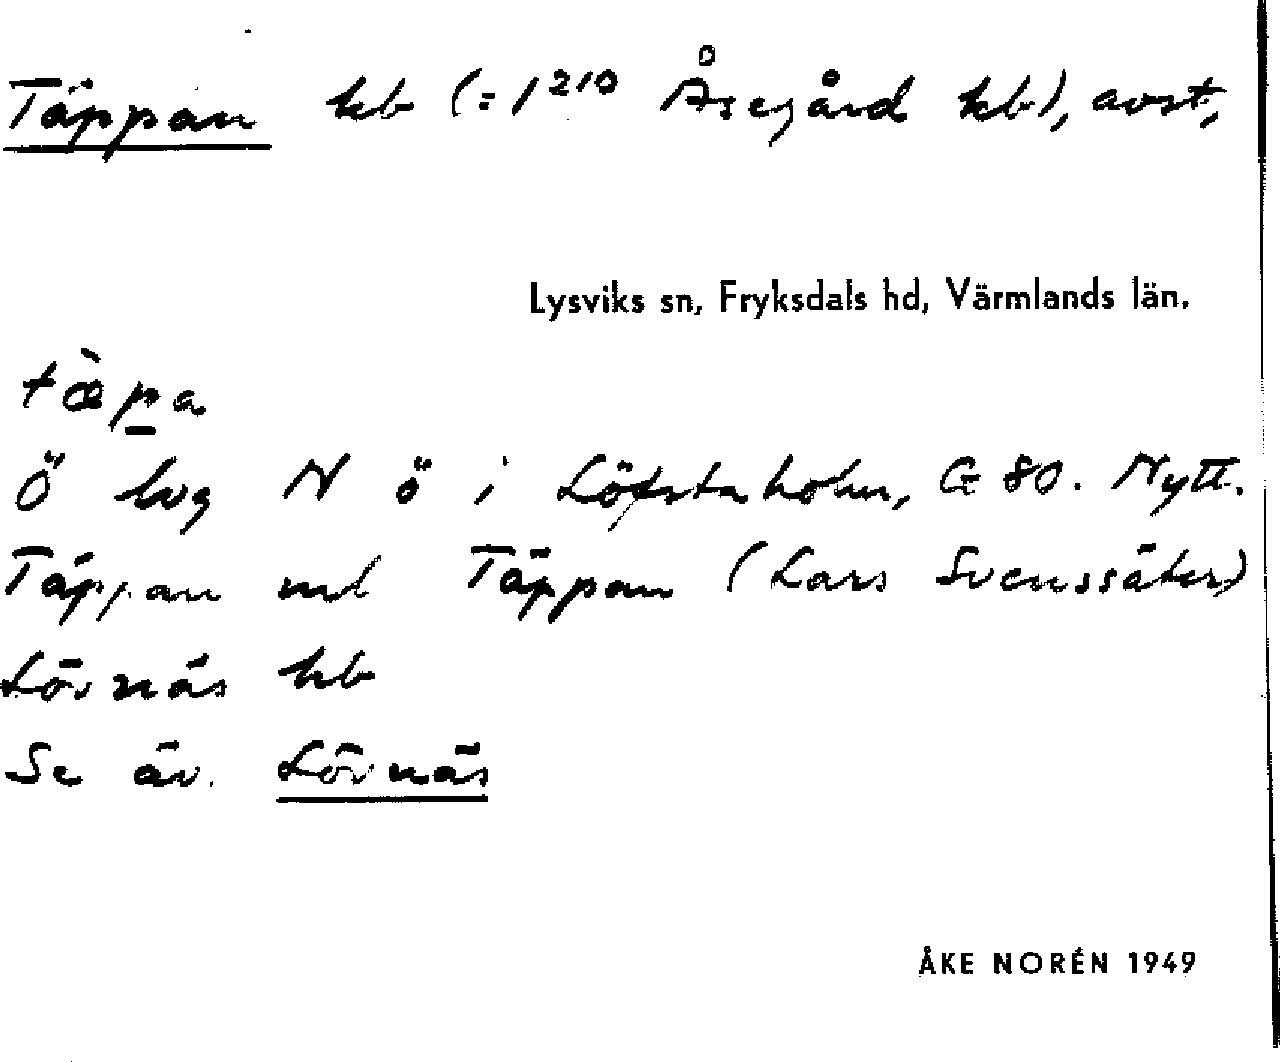 Täppan hb (= 1²¹⁰ Åsegård hb), avst,
Lysviks sn, Fryksdals hd, Värmlands län.
tæ̀pa
Ö bog N ö i Löfstaholm, G 80. Nytt.
Täppan
Täppan (Lars Svenssäter)
Lövnäs hb
Se äv. Lövnäs
ÅKE NORÉN 1949